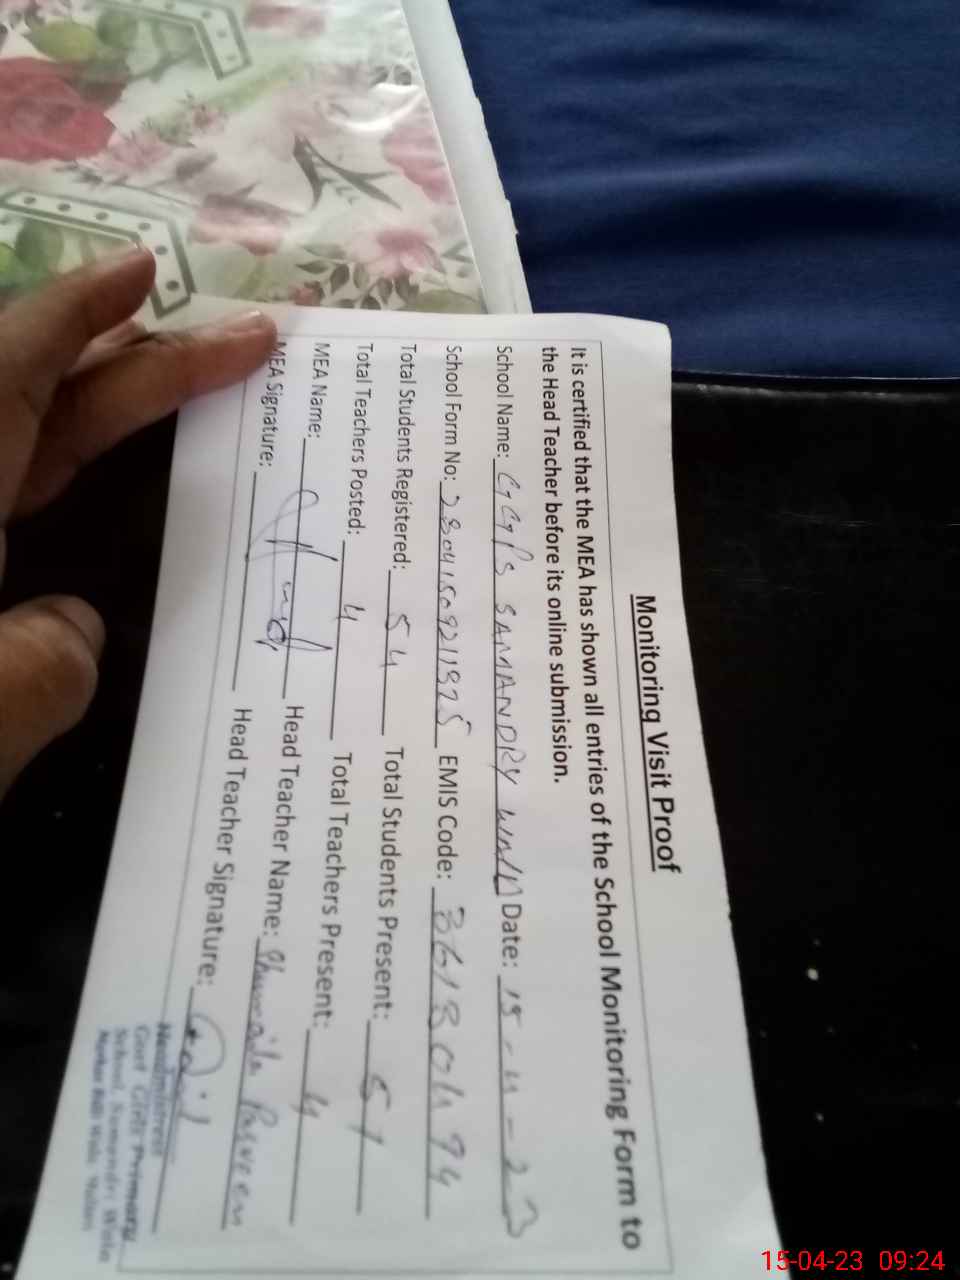 Monitoring Visit Proof
It is certified that the MEA has shown all entries of the School Monitoring Form to
the Head Teacher before its online submission.
School Name: GGPS SAMANDRY Date: 15-4-23
School Form No: EMIS Code:
Total Students Registered: 54 Total Students Present: 51
Total Teachers Posted: 4 Total Teachers Present: 4
MEA Name: Head Teacher Name: Parveen
MEA Signature: Head Teacher Signature:
Headmistress
Govt Girls Primary
School, Samandri Wala
15-04-23 09:24